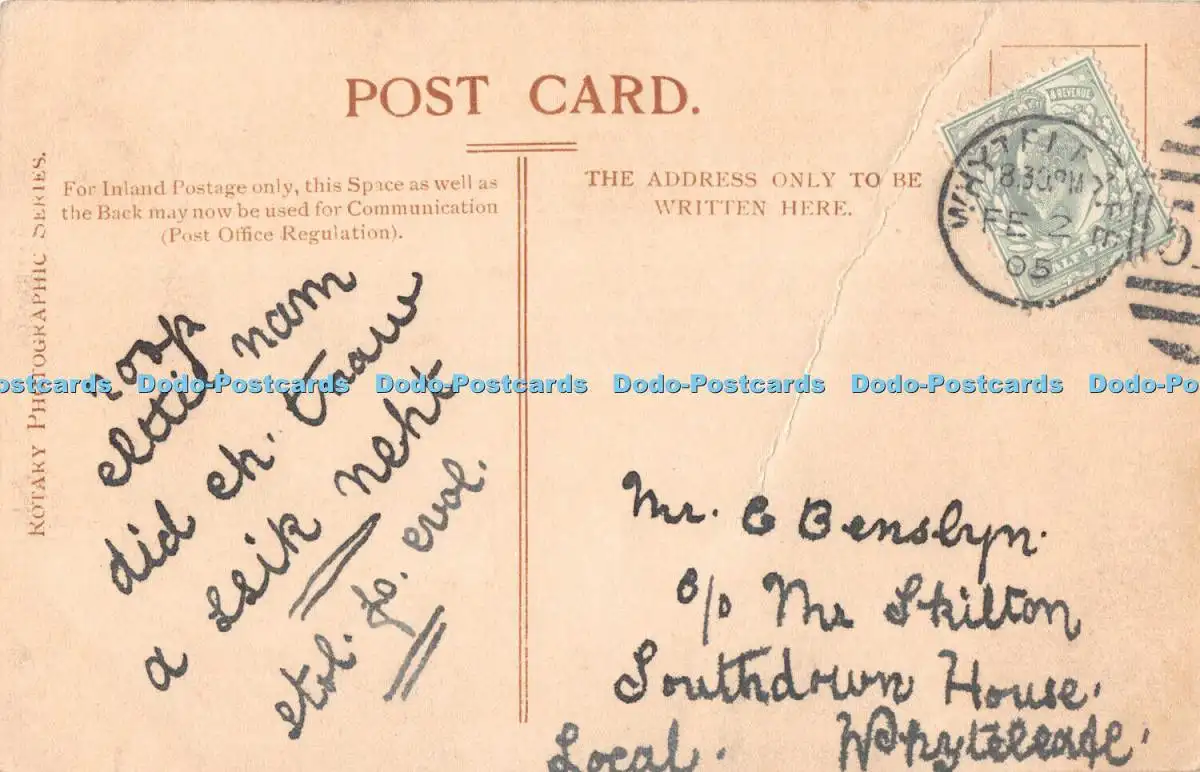 POST CARD.
ROTARY PHOTOGRAPHIC SERIES.
For Inland Postage only, this Space as well as
the Back may now be used for Communication
(Post Office Regulation).
THE ADDRESS ONLY TO BE
WRITTEN HERE.
& REVENUE
WHYTELEAFE
8.30PM
FE 2
05
roop
elttil nam
did eh. tnaw
a ssik neht
stol. fo. evol.
Mr. E Benslyn.
c/o Mr Skilton
Southdown House.
Local. Whyteleafe.
ostcards Dodo-Postcards Dodo-Postcards Dodo-Postcards Dodo-Postcards Dodo-Po